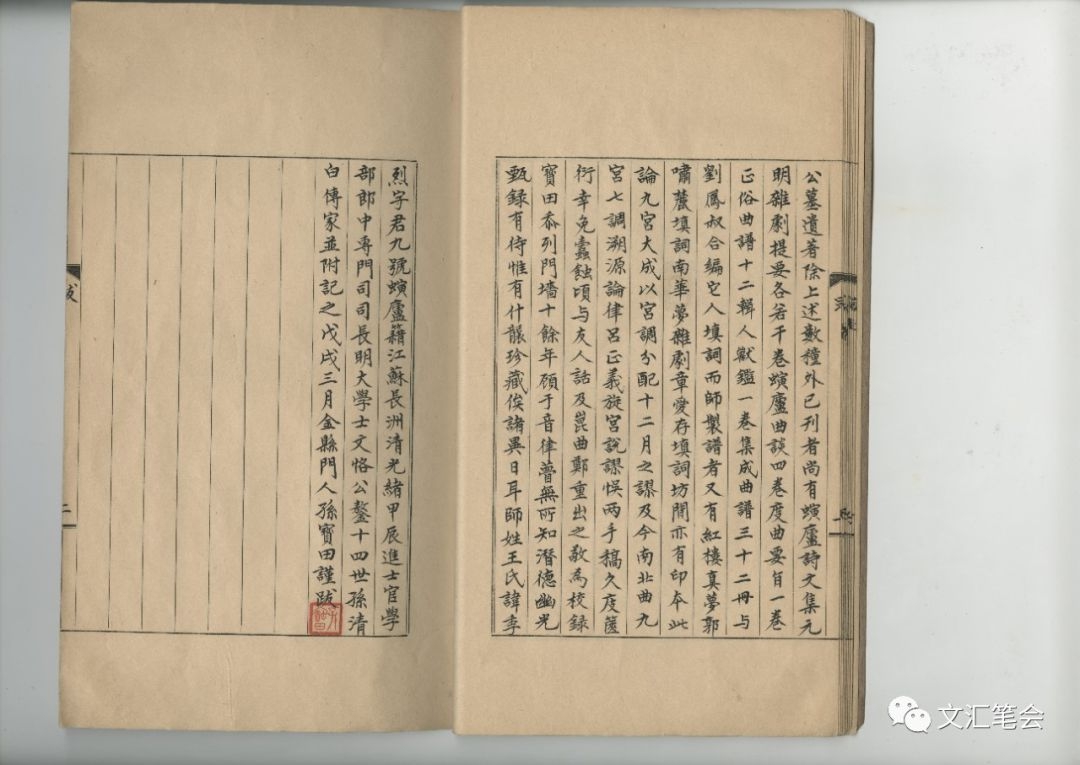 公墓遺著除上述數種外已刋者尚有螾廬詩文集元
明雜劇提要各若干卷螾廬曲談四卷度曲要旨一卷
正俗曲譜十二輯人獸鑑一卷集成曲譜三十二冊與
劉鳳叔合編它人填詞而師製譜者又有紅樓真夢郭
嘯麓填詞南華夢雜劇章愛存填詞坊間亦有印本此
論九宮大成以宮調分配十二月之謬及今南北曲九
宮七調溯源論律呂正義旋宮說謬悞两手稿久庋篋
衍幸免蠹蝕頃与友人話及崑曲鄭重出之敬為校錄
寶田忝列門墻十餘年顧于音律瞢無所知潛德幽光
甄錄有待惟有什襲珍藏俟諸異日耳師姓王氏諱季
烈字君九號螾廬籍江蘇長洲清光緒甲辰進士官學
部郎中專門司司長明大學士文恪公鏊十四世孫清
白傳家並附記之戊戌三月金縣門人孫寶田謹跋
跋
二
文汇笔会